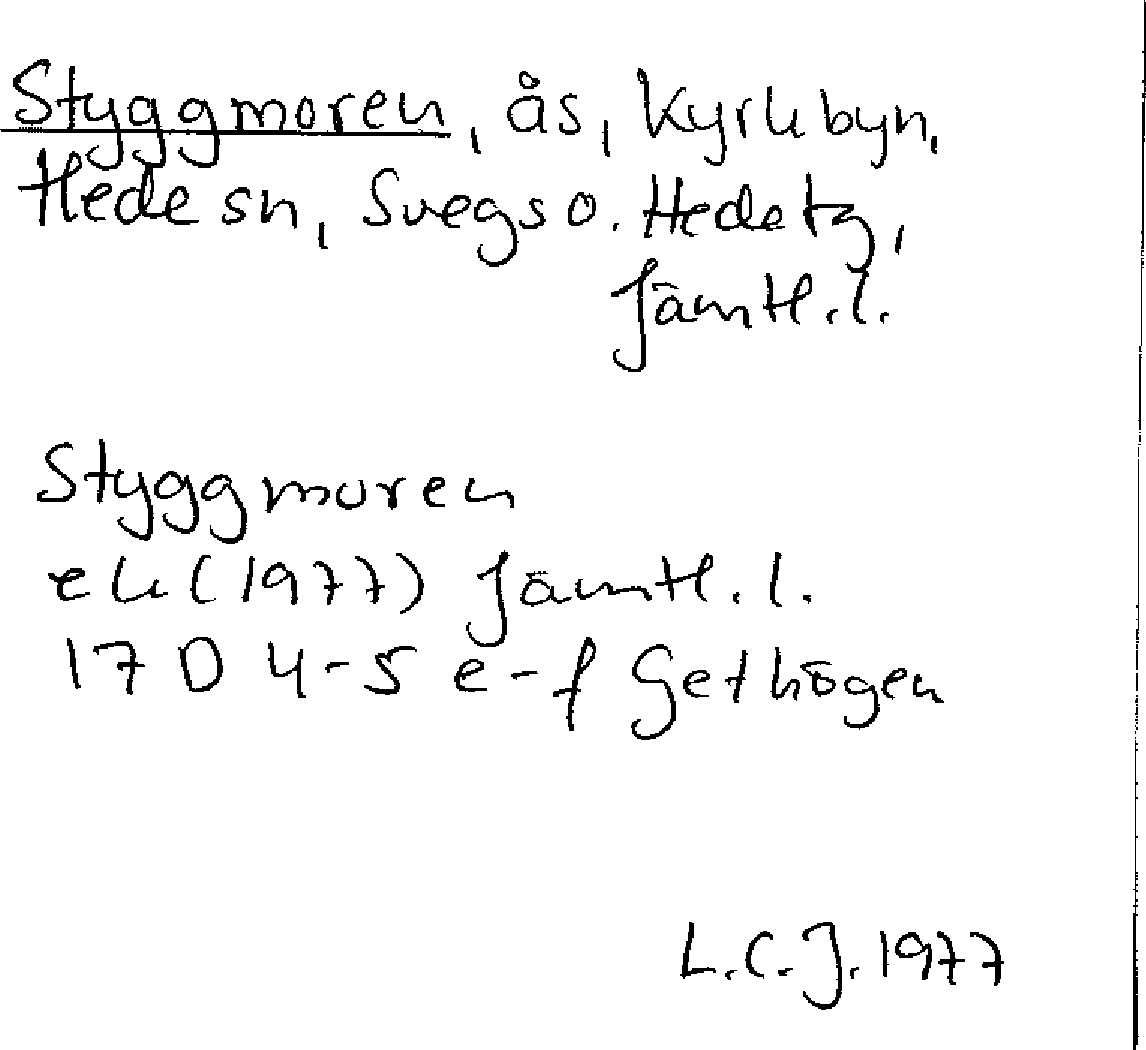 Styggmoren, ås, Kyrkbyn,
Hede sn, Svegs o. Hede tg,
Jämtl. l.
Styggmoren
ek (1977) Jämtl. l.
17 D 4-5 e-f Gethögen
L.C.J. 1977